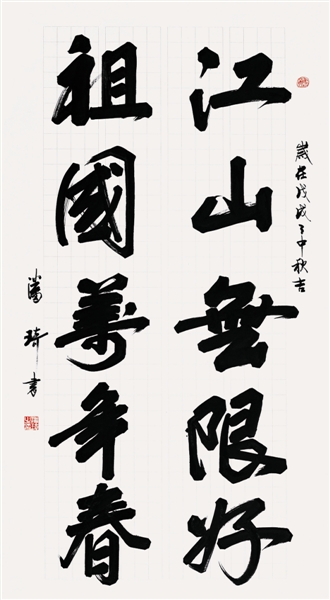 江山無限好
祖國萬年春
歲在戊戌之中秋吉
潘琦書